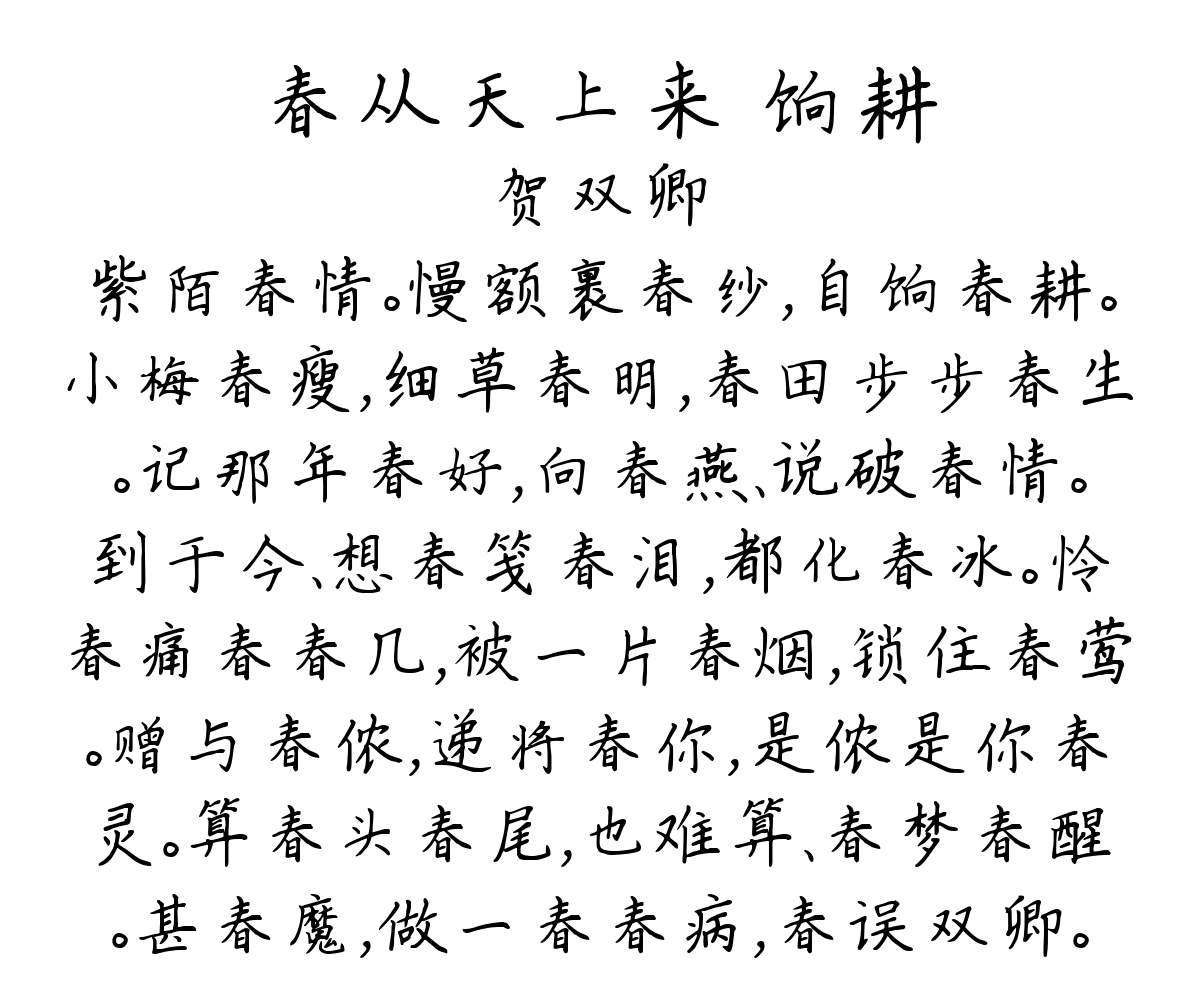 春从天上来 饷耕
贺双卿
紫陌春情。慢额裹春纱,自饷春耕。
小梅春瘦,细草春明,春田步步春生
。记那年春好,向春燕、说破春情。
到于今、想春笺春泪,都化春冰。怜
春痛春春几,被一片春烟,锁住春莺
。赠与春侬,递将春你,是侬是你春
灵。算春头春尾,也难算、春梦春醒
。甚春魔,做一春春病,春误双卿。